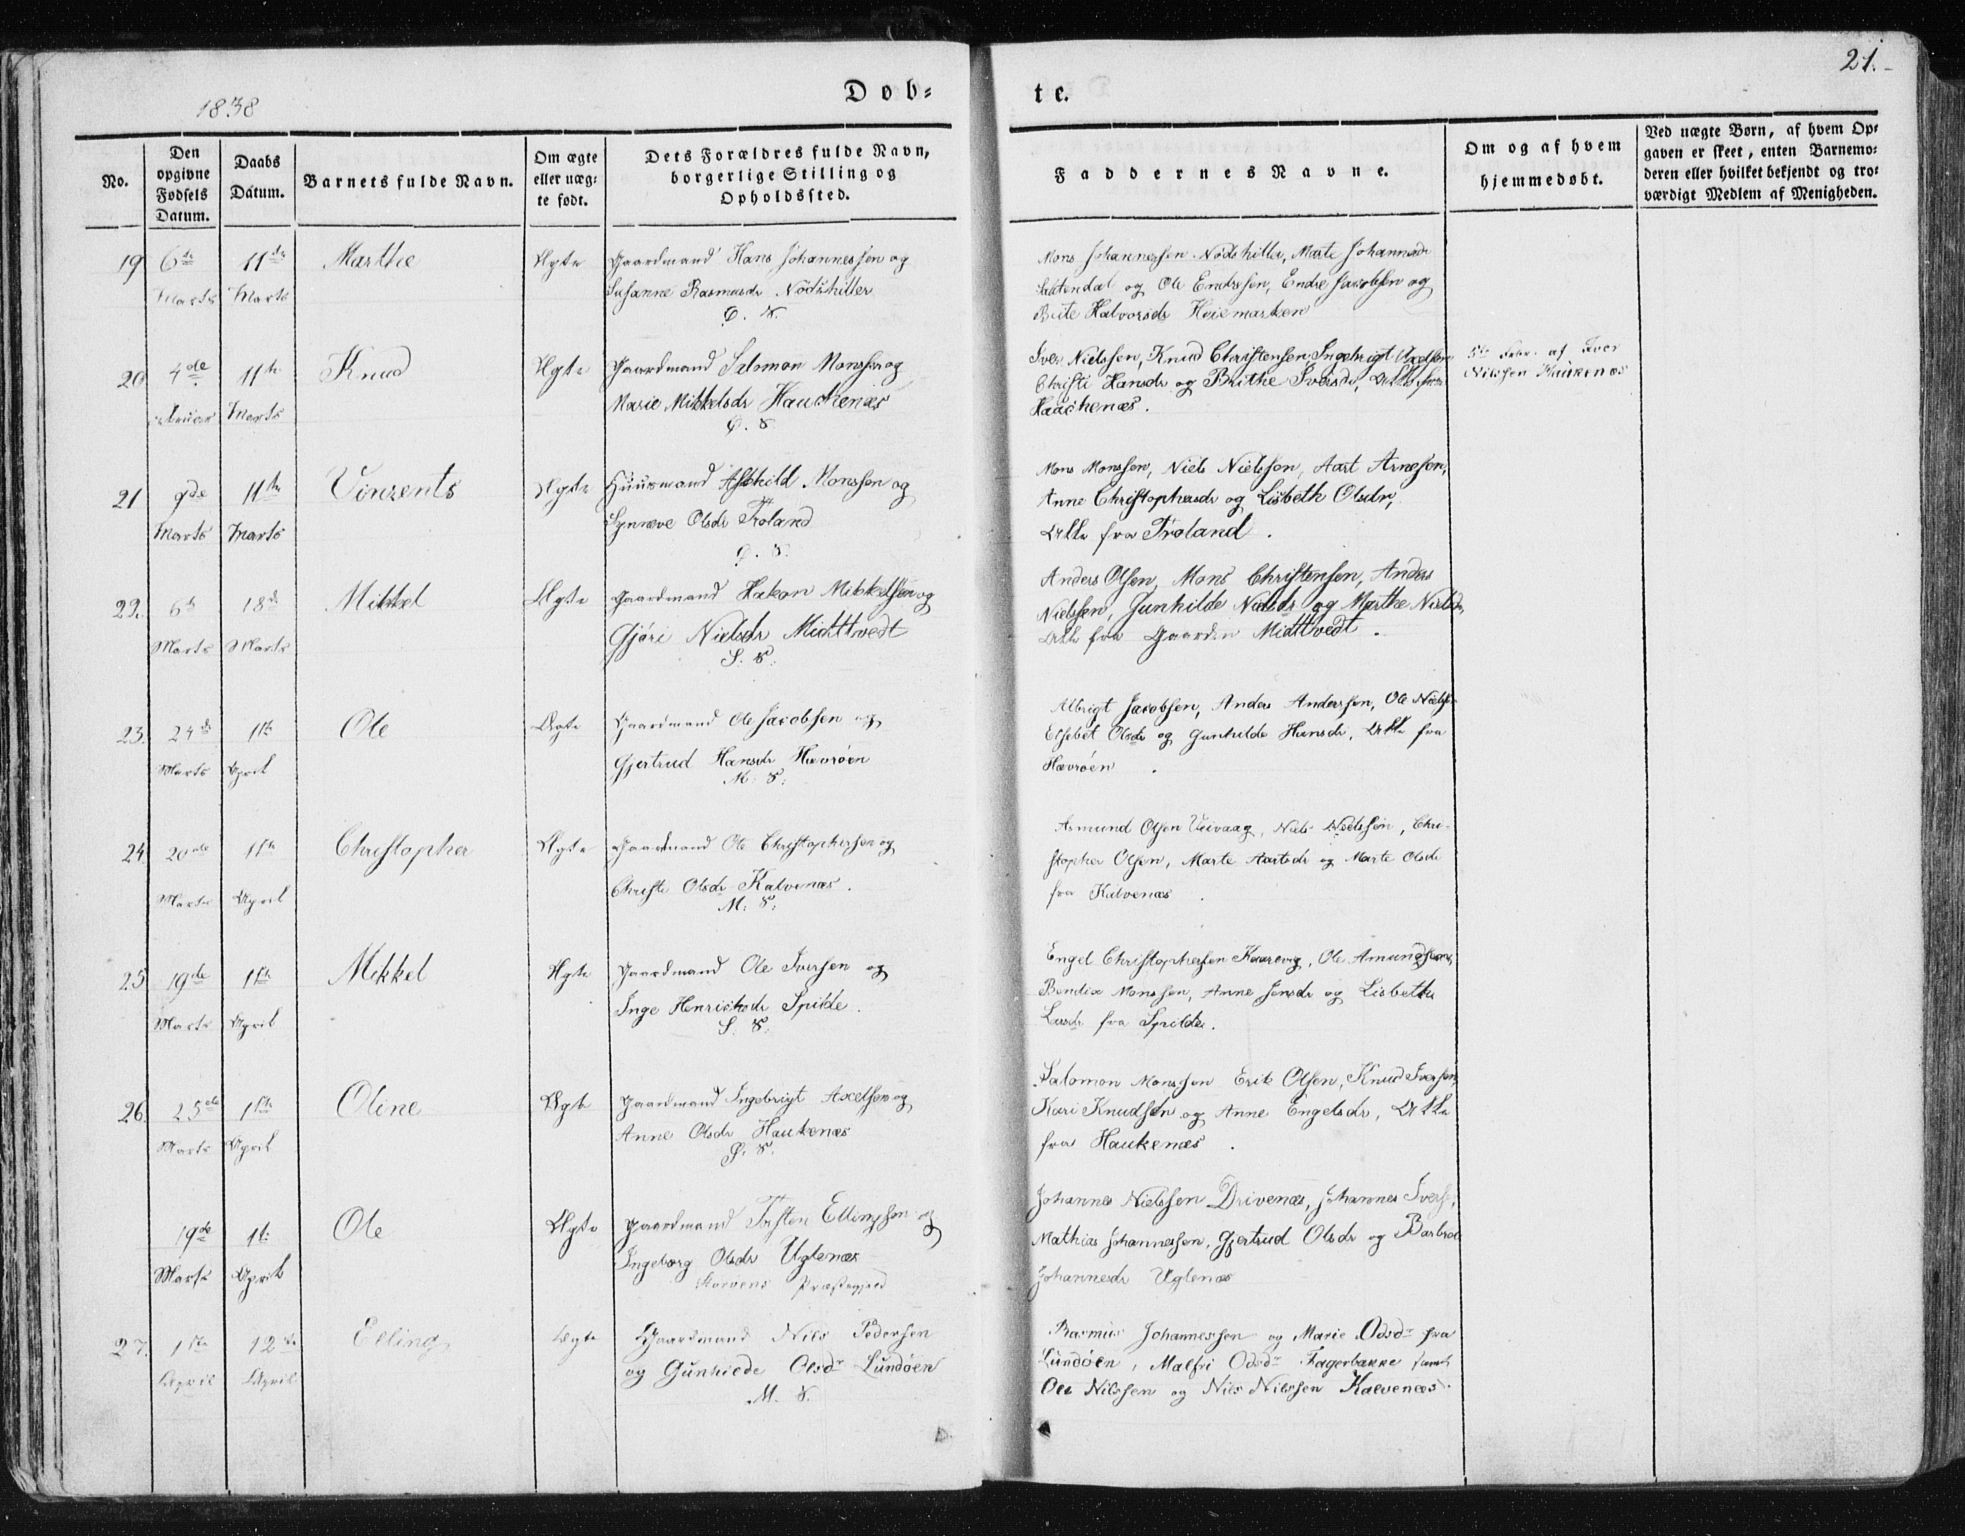 1838
Døb-
te.
21.
No.
Den opgivne Fødsels Datum.
Daabs Datum.
Barnets fulde Navn.
Om ægte eller uægte født.
Dets Forældres fulde Navn, borgerlige Stilling og Opholdssted.
Faddernes Navne.
Om og af hvem hjemmedøbt.
Ved uægte Børn, af hvem Opgaven er skeet, enten Barnemoderen eller hvilket bekjendt og troværdigt Medlem af Menigheden.
19 6te Marts 11te Marts Marthe Ægte
Gaardmand Hans Johannessen og
Susanne Rasmusdr Nødshitler
Mons Johannessen Nødshitler, Marte Johannesdr
og Ole Endresen, Endre Jacobsen og
Brite Halvorsdr Høiemarken
20 4de 11te Marts Knud Ægte
Gaardmand Salomon Monssen og
Marie Mikkelsdr Hauckenæs
Iver Nielssen, Knud Christensen, Ingebrigt Axelsen
Christi Hansdr og Brithe Iversdr, Alle fra
Haackenæs.
5te Febr. af Iver
Nilssen Haukenæs
21 9de Marts 11te Marts Vinzents Ægte
Huusmand Monssen og
Synneve Olsdr Troland
Mons Monssen, Niels Nielssen, Aart Arnesen,
Anne Christophersdr og Lisbeth Olsdr,
Alle fra Troland.
22. 6te Marts 18de Marts Mikkel Ægte
Gaardmand Hakon Mikkelsen og
Gjøri Nielsdr Midttvedt
S. S.
Anders Olsen, Mons Christensen, Anders
Nielssen, Gunhilde Nielsdr og Marthe Nielsdr,
Alle fra Gaarden Midttvedt.
23. 24de Marts 1ste April Ole Ægte
Gaardmand Ole Jacobsen og
Gjertrud Hansdr Hævrøen
M: S:
Albrigt Jacobsen, Anders Anderssen, Ole Niels-
Elsebet Olsdr og Gunhilde Hansdr, Alle fra
Hævrøen.
24 20de Marts 1ste April Christopher Ægte
Gaardmand Ole Christophersen og
Christi Olsdr Kalvenæs.
M: S:
Asmund Olsen Veivaag, Niels Nielssen, Chri-
stopher Olsen, Marte Aartsdr og Marte Olsdr
fra Kalvenæs.
25 19de Marts 1ste April Mikkel Ægte
Gaardmand Ole Iversen og
Inge Henrichsdr Spilde.
S. S.
Engel Christophersen Kaarevig, Ole Amundsen,
Bendix Monssen, Anne Jensdr og Lisbethe
Larsdr fra Spilde.
26. 25de Marts 1ste April Oline Ægte
Gaardmand Ingebrigt Axelsen og
Anne Olsdr Haukenæs
Salomon Monssen Erik Olsen, Knud Iversen,
Kari Knudsen og Anne Engelsdr, Alle
fra Haukenæs.
19de Marts 1te April Ole Ægte
Gaardmand Torsten Ellingsen og
Ingeborg Olsdr Uglenæs
Præstegjeld
Johannes Nielssen Drivenæs, Johannes Iverss,
Mathias Johannessen, Gjertrud Olsdr og Barbroe
Johannesdr Uglenæs
27. 1ste April 12te April Elling Ægte
Gaardmand Nils Pedersen
og Gunhilde Olsdr Lundøen
M. S.
Rasmus Johannessen og Marie Odsdr fra
Lundøen, Malfri Odsdr Fagerbakke samt
Ole Nilssen og Nils Nilssen Kalvenæs.